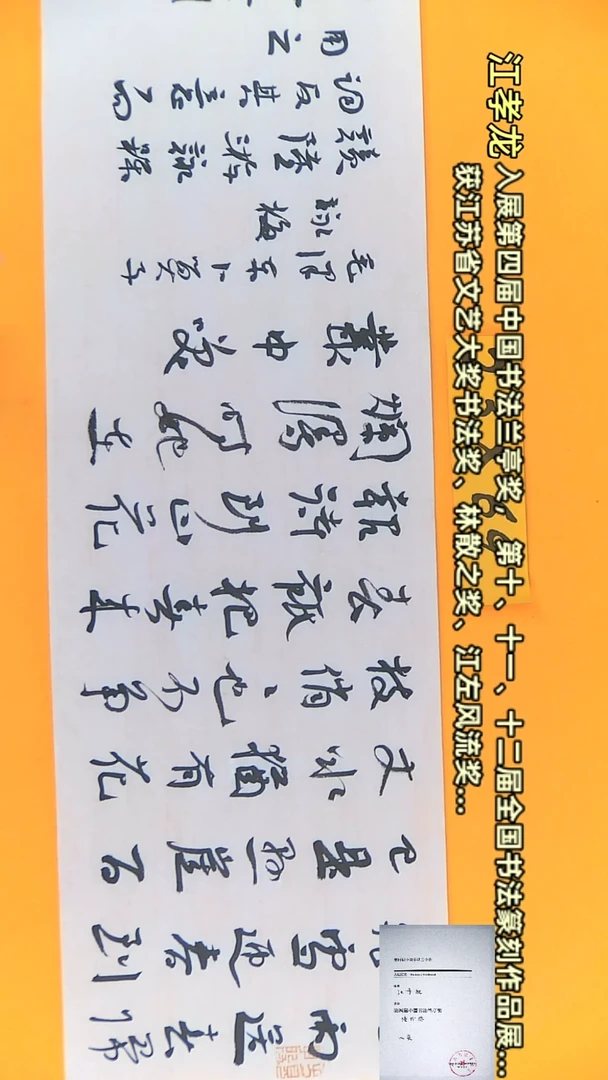 江孝龙 入展第四届中国书法兰亭奖、第十、十一、十二届全国书法篆刻作品展...
获江苏省文艺大奖书法奖、林散之奖、江左风流奖...
雨送春归
雪迎春到
已是悬崖百
丈冰猶有花
枝俏々也不争
春祇把春来
報待到山花
爛漫时她在
叢中笑
毛泽东卜算子
詠梅
读陸游詠梅
词反其意而
用之